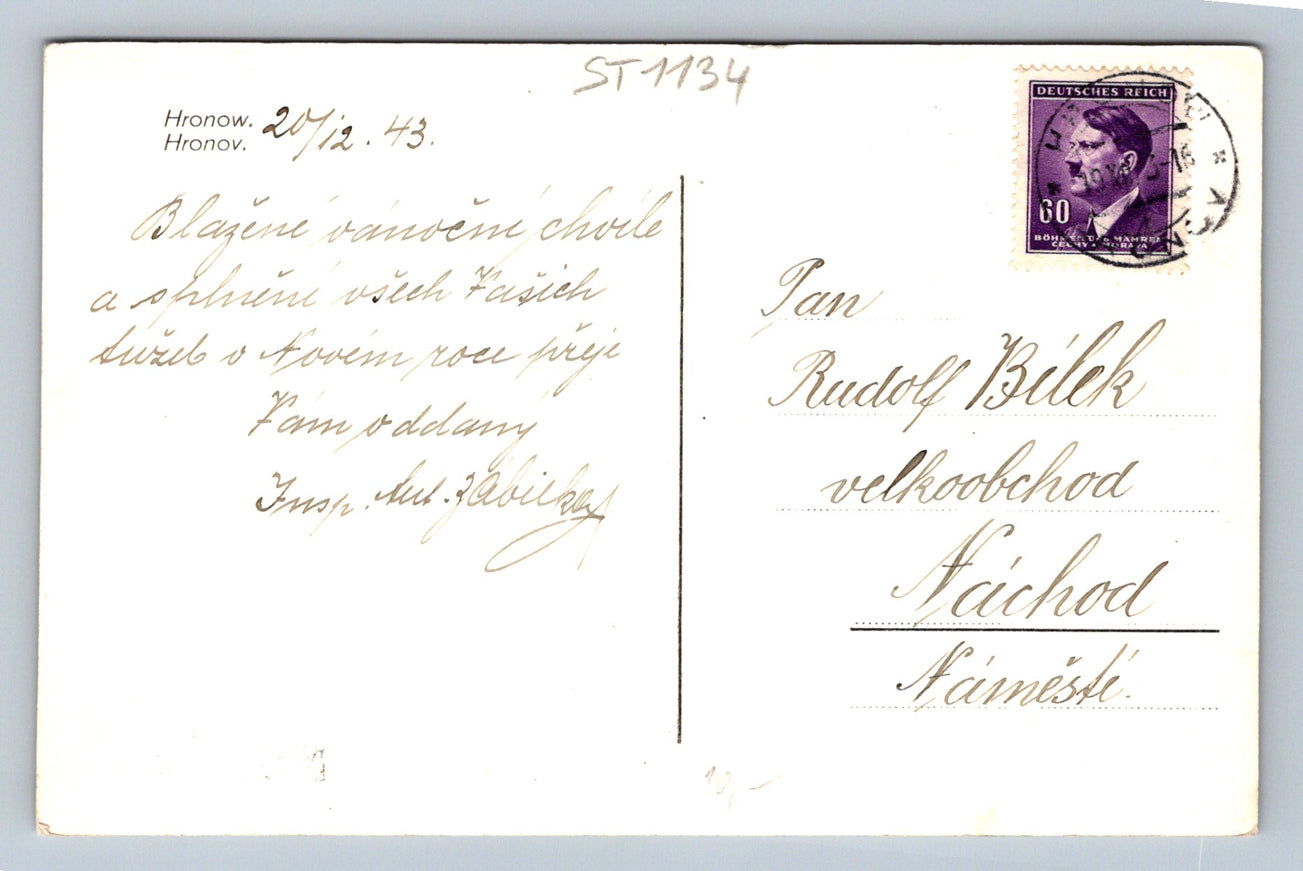 ST 1134
Hronow. 20/12. 43.
Hronov.
Blažené vánoční chvíle
a splnění všech Vašich
tužeb v Novém roce přeje
Vám oddaný
Insp. Ant. Zábilka
DEUTSCHES REICH
60
BÖHMEN UND MÄHREN
ČECHY A MORAVA
Pan
Rudolf Bílek
velkoobchod
Náchod
Náměstí.
10,-